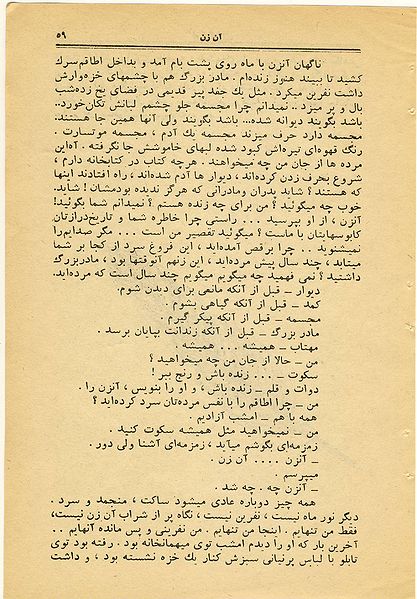 آن زن
۵۹
ناگهان آنزن با ماه روی پشت بام آمد و بداخل اطاقم سرك
کشید تا ببیند هنوز زنده‌ام . مادر بزرگ هم با چشمهای خزه‌وارش
داشت نفرین میکرد . مثل یك جغد پیر قدیمی در فضای یخ زده شب
بال و پر میزد .. نمیدانم چرا مجسمه جلو چشمم لبانش تکان خورد..
باشد بگویند دیوانه شده... باشد بگویند ولی آنها همین جا هستند.
مجسمه دارد حرف میزند مجسمه یك آدم ، مجسمه موتسارت .
رنگ قهوه‌ای تیره‌اش کبود شده لبهای خاموشش جا نگرفته . آه این
مرده ها از جان من چه میخواهند . هرچه کتاب در کتابخانه دارم ،
شروع بحرف زدن کرده‌اند ، دیوار ها آدم شده‌اند ، راه افتادند اینها
که هستند ؟ شاید پدران ومادرانی که هرگز ندیده بودمشان ! شاید.
خوب چه میگوئید ؟ من برای چه زنده هستم ؟ نمیدانم شما بگوئید!
آنزن ، از او بپرسید ... راستی چرا خاطره شما و تاریخ درازتان
کابوسهایتان با ماست ؟ میگوئید تقصیر من است ... مگر صدایم را
نمیشنوید .. چرا برقص آمده‌اید ، این فروغ سرد از کجا بر شما
میتابد ، چند سال پیش مرده‌اید ، این زنهم آنوقتها بود ، مادربزرگ
داشتید ؟ نمی فهمید چه میگویم میگویم چند سال است که مرده‌اید.
دیوار ـ قبل از آنکه مانعی برای دیدن شوم.
کمد ـ قبل از آنکه گیاهی بشوم .
مجسمه ـ قبل از آنکه پیکر گیرم .
مادر بزرگ ـ قبل از آنکه زندانت بپایان برسد .
مهتاب ـ همیشه ... همیشه .
من ـ حالا از جان من چه میخواهید ؟
سکوت ـ ... زنده باش و رنج ببر !
دوات و قلم ـ زنده باش ، و او را بنویس ، آنزن را .
من ـ چرا اطاقم را با نفس مرده‌تان سرد کرده‌اید ؟
همه با هم ـ امشب آزادیم .
من ـ نمیخواهید مثل همیشه سکوت کنید .
زمزمه‌ای بگوشم میآید ، زمزمه‌ای آشنا ولی دور .
ـ آنزن .... آن زن .
میپرسم .
ـ آنزن چه . چه شد .
همه چیز دوباره عادی میشود ساکت ، منجمد و سرد .
دیگر نور ماه نیست ، نفرین نیست ، نگاه پر از شراب آن زن نیست،
فقط من تنهایم . اینجا من تنهایم . من نفرینی و پس مانده آنهایم ..
آخرین بار که او را دیدم امشب توی میهمانخانه بود . رفته بود توی
تابلو با لباس پرنیانی سبزش کنار یك خزه نشسته بود ، و داشت